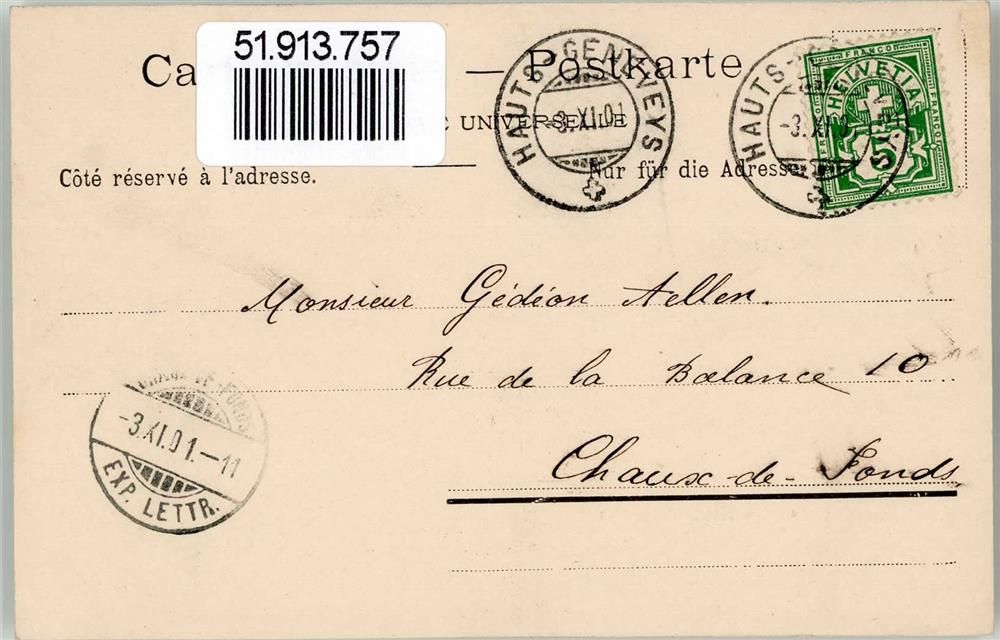 51.913.757
— Postkarte
UNIVERSELLE
Côté réservé à l'adresse.
Nur für die Adresse
HAUTS-GENEVEYS
-3.XI.01
HAUTS-
-3.XI.0
FRANCO
HELVETIA
FRANCO
5
Monsieur Gédéon Aellen.
Rue de la Balance 10
Chaux-de-Fonds
-3.XI.01.-11
EXP. LETTR.